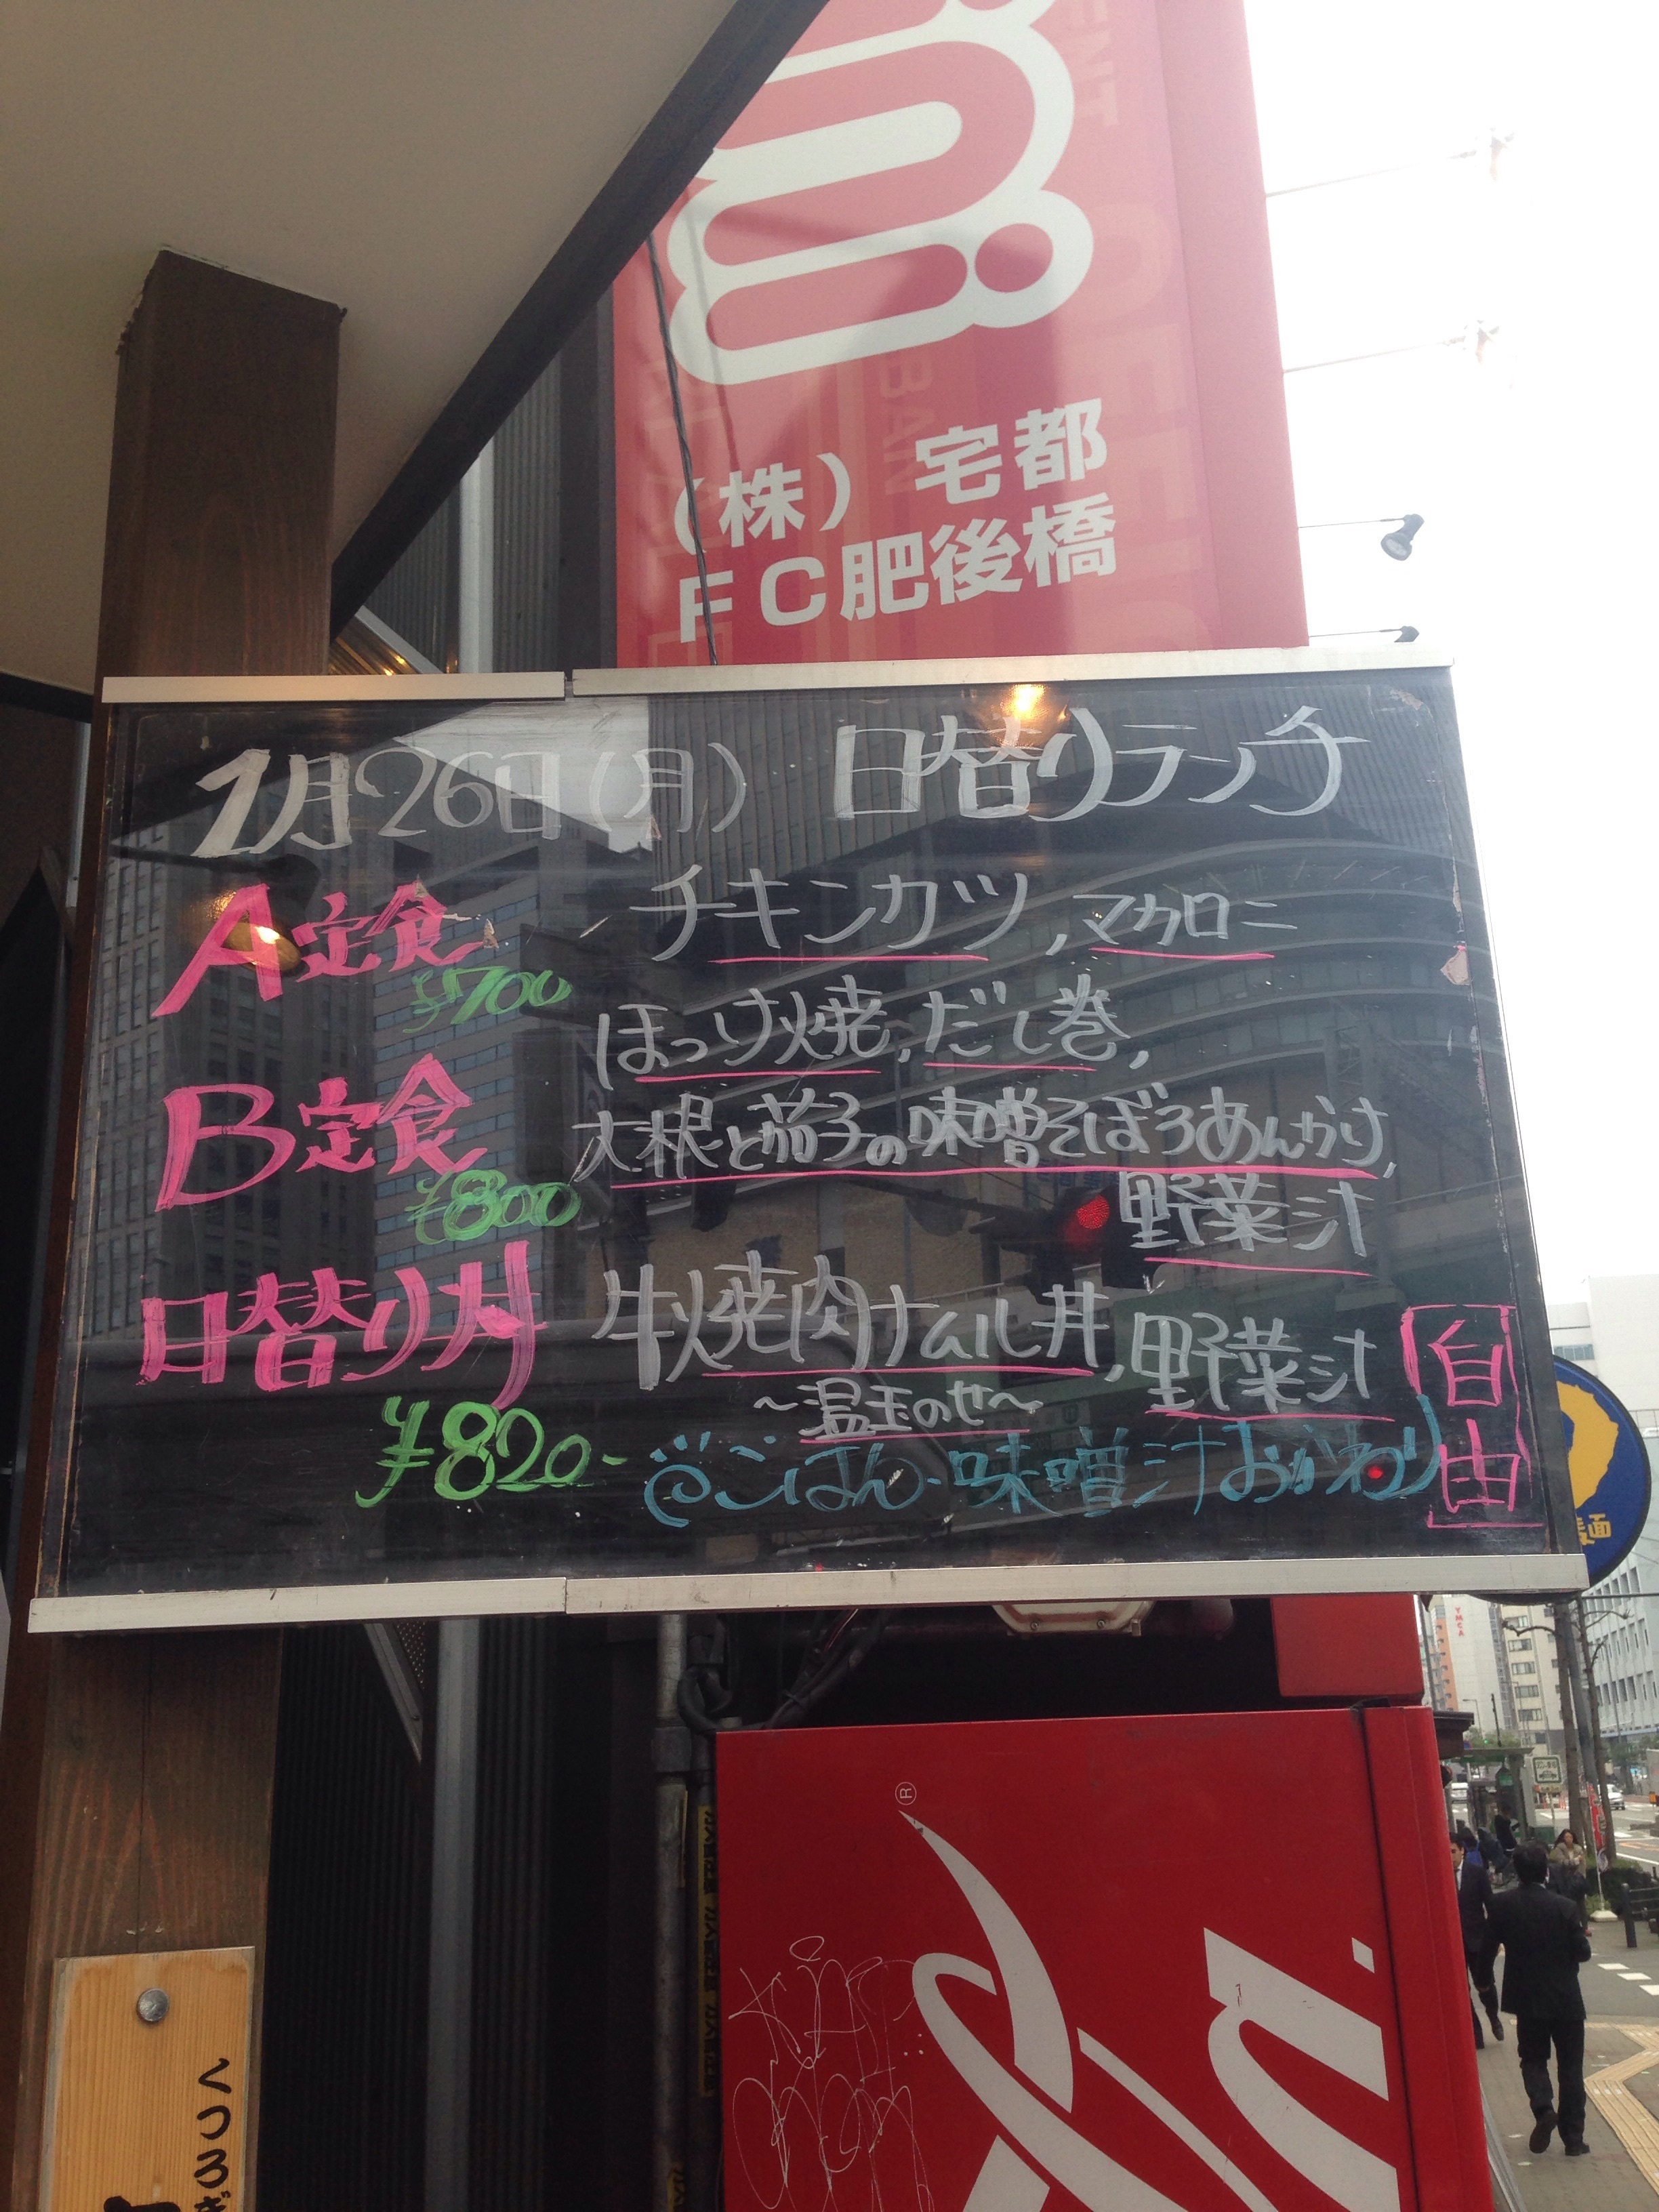 (株)宅都
FC肥後橋
1月26日(月) 日替りランチ
A定食 チキンカツ,マカロニ
¥700
ほっけ焼,だし巻,
B定食 大根と茄子の味噌そぼろあんかけ,
¥800 野菜汁
日替り丼 牛焼肉ナムル丼,野菜汁
~温玉のせ~
¥820- ごはん・味噌汁おかわり 自由
くつろぎ
YMCA